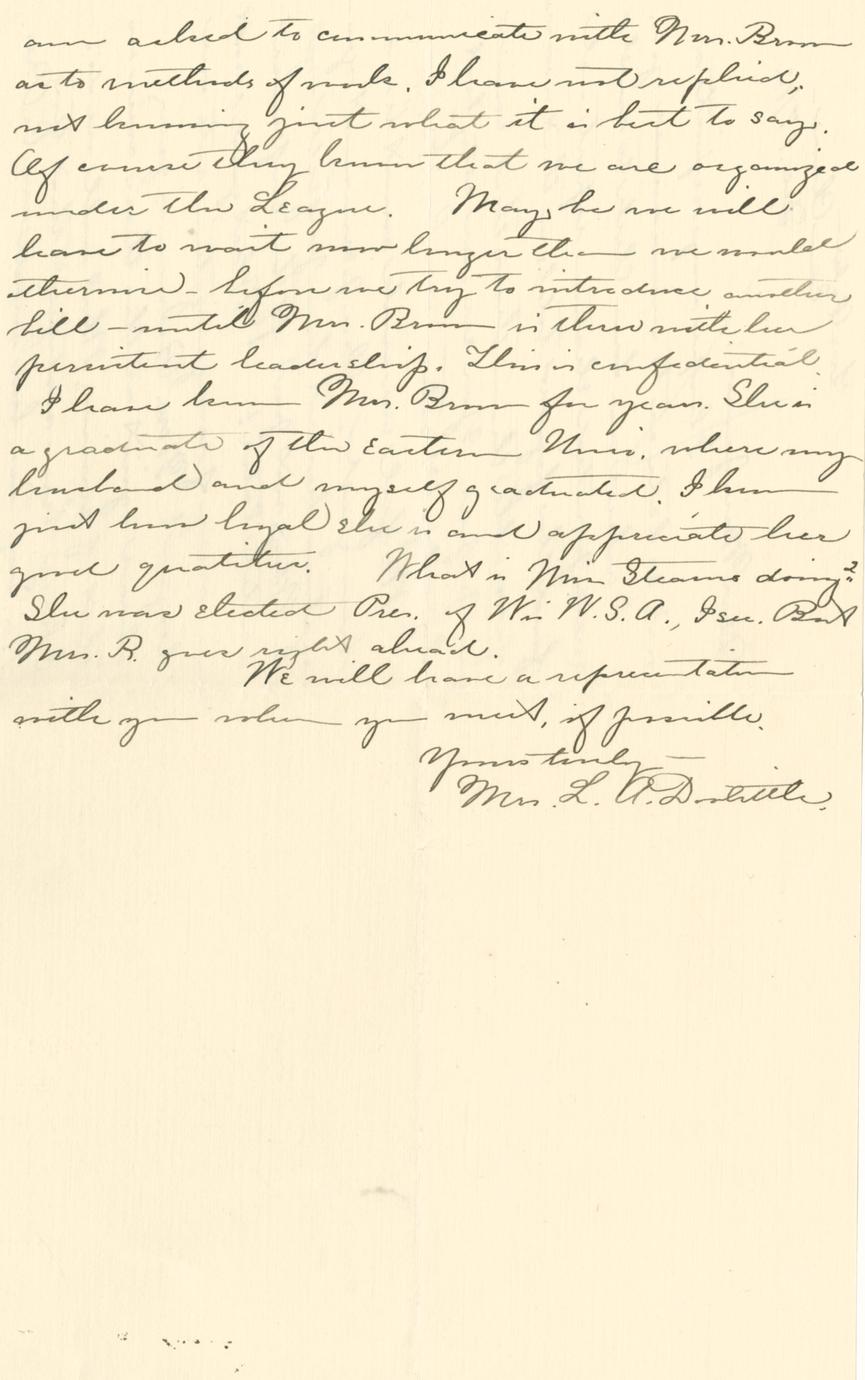 am asked to communicate with Mrs. Brown
as to methods of work. I have not replied,
not knowing just what it is best to say.
Of course they know that we are organized
under the League. May be we will
have to wait now longer than we would
otherwise - before we try to introduce another
bill - until Mrs. Brown is thru with her
persistent leadership. This is confidential.
I have known Mrs. Brown for years. She is
a graduate of the Eastern Univ. where my
husband and myself graduated. I know
just how loyal she is and appreciate her
good qualities. What is Miss Stearns doing?
She was elected Pres. of Wis W.S.A., I see. But
Mrs. R. goes right ahead.
We will have a representation
with you when you meet, if possible.
Yours truly -
Mrs. L. A. Doolittle.